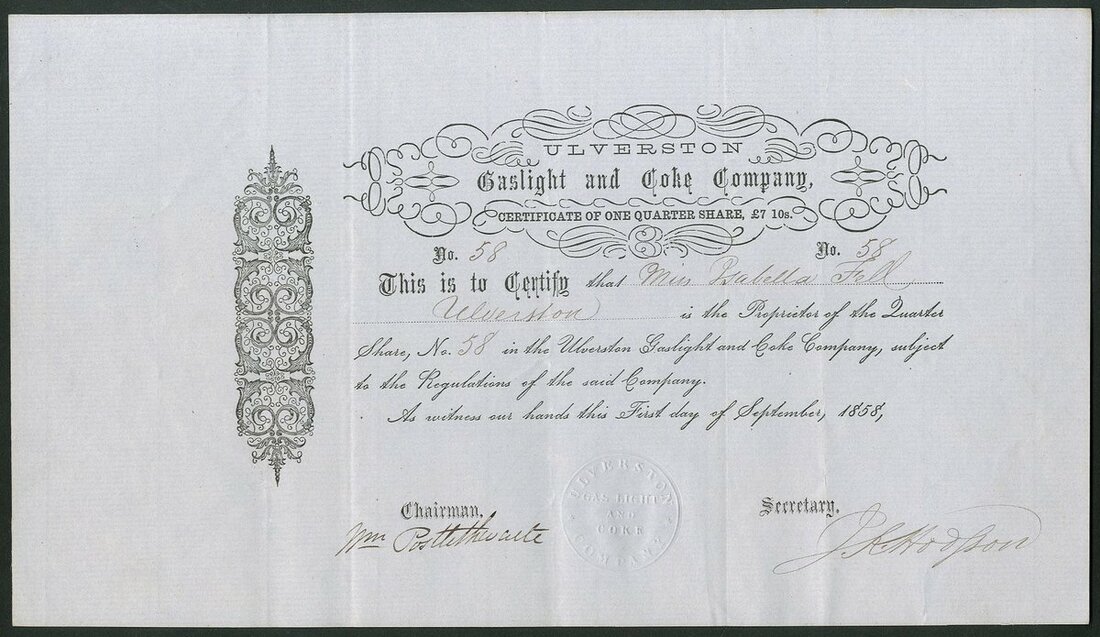 ULVERSTON
Gaslight and Coke Company,
CERTIFICATE OF ONE QUARTER SHARE, £7 10s.
No. 58 No. 58
This is to Certify that Miss Isabella Fell
Ulverston is the Proprietor of the Quarter
Share, No. 58 in the Ulverston Gaslight and Coke Company, subject
to the Regulations of the said Company.
As witness our hands this First day of September, 1858,
Chairman. Secretary.
Wm Postlethwaite J K Hodgson
ULVERSTON
GAS LIGHT
AND
COKE
COMPANY